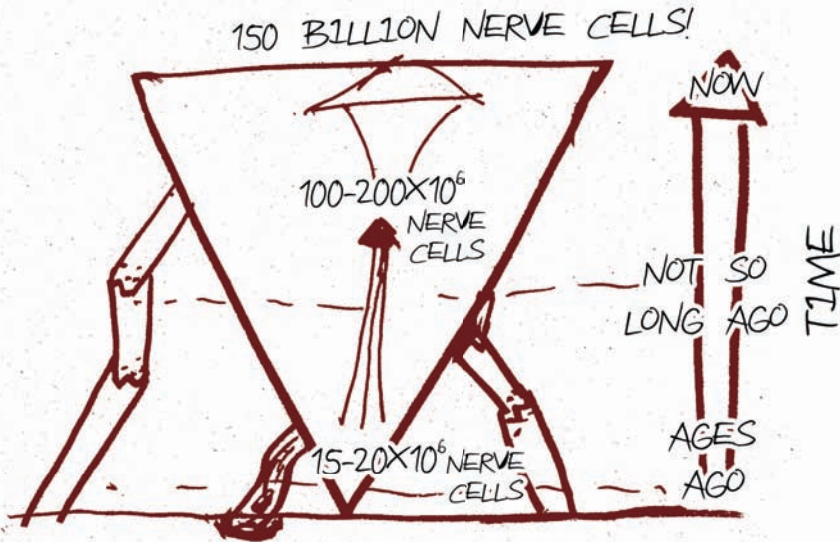 150 BILLION NERVE CELLS!
NOW
100-200X10⁶
NERVE
CELLS
NOT SO
LONG AGO
TIME
AGES
AGO
15-20X10⁶ NERVE
CELLS